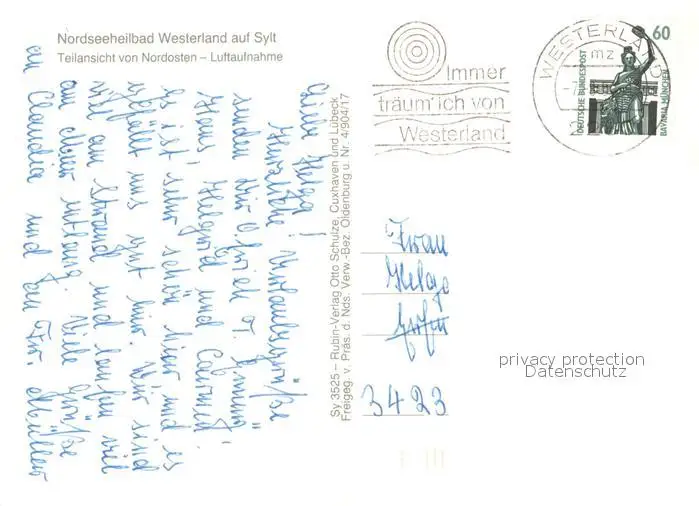 Nordseeheilbad Westerland auf Sylt
Teilansicht von Nordosten – Luftaufnahme
Immer
träum' ich von
Westerland
WESTERLAND
mz
60
DEUTSCHE BUNDESPOST
BAVARIA MÜNCHEN
Liebe Helga!
Herzliche Urlaubsgrüße
senden Dir
Hans Helgard und
es ist sehr schön hier und es
gefällt uns gut hier. Wir sind
viel am Strand und laufen viel
am Meer entlang. Viele Grüße
an Claudia und an Fr. Müller
Sy 3525 – Rubin-Verlag Otto Schulze, Cuxhaven und Lübeck
Freigeg. v. Präs. d. Nds. Verw.-Bez. Oldenburg u. Nr. 4/904/17
Frau
Helga
3423
privacy protection
Datenschutz